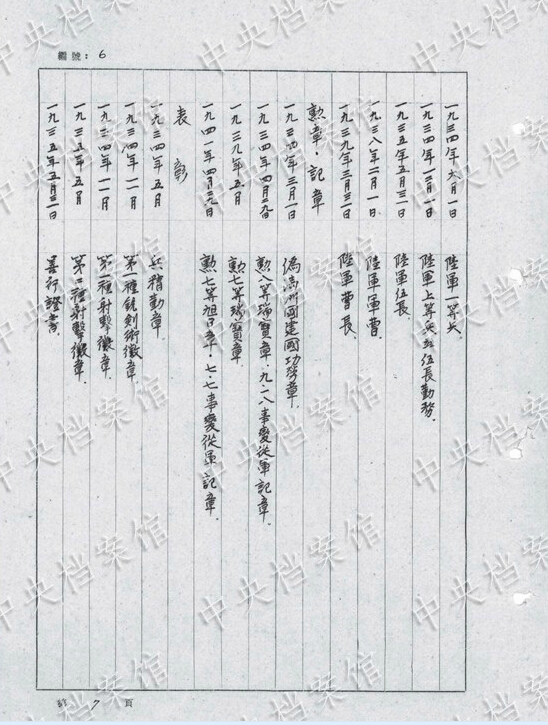 編號：6
一九三四年六月一日 陸軍一等兵
一九三四年一二月一日 陸軍上等兵 伍長勤務.
一九三五年五月三一日 陸軍伍長
一九三八年二月一日 陸軍軍曹.
一九三九年三月三一日 陸軍曹長.
勲章·記章
一九三四年三月一日 偽満州國建國功労章.
一九三四年四月二九日 勲八等瑞寶章.九.一八事変從軍記章.
一九三九年五月 勲七等瑞寶章.
一九四一年四月二九日 勲七等旭日章.七.七事変從軍記章.
表彰
一九三四年五月 兵精勤章.
一九三四年一一月 第一種銃劍術徽章.
一九三四年一一月 第一種射撃徽章.
一九三五年五月 第二種射撃徽章.
一九三五年五月三一日 善行證書.
第 7 頁
中央档案馆